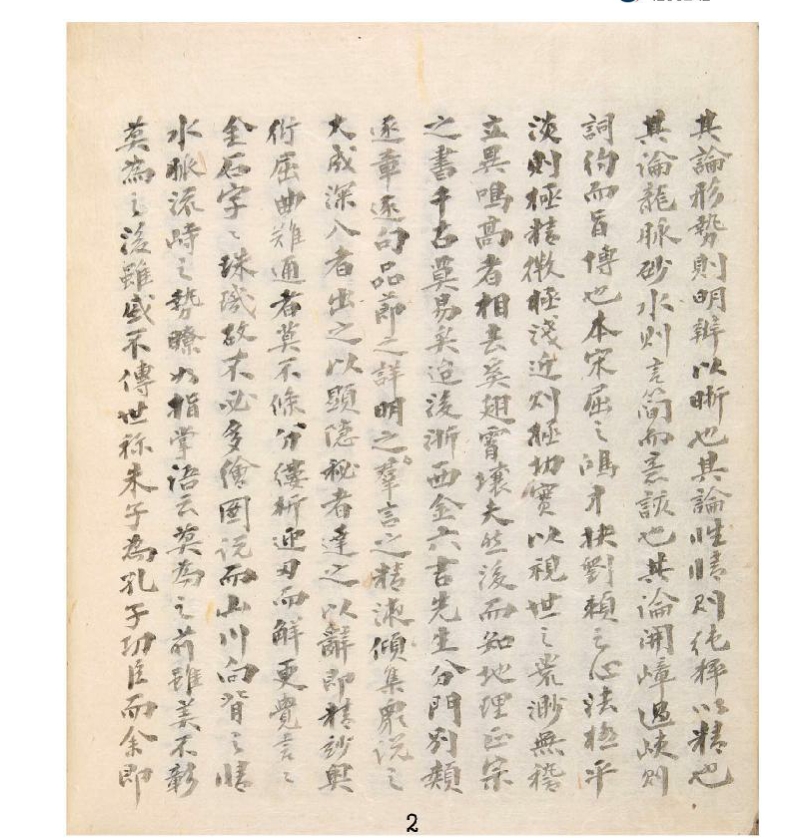 其論形勢則明辨以晰也其論性情則純粹以精也
其論龍脉砂水則言簡而意該也其論開嶂過峽則
詞約而旨博也本宋屈之鴻才抉劉賴之心法極平
淡則極精微極淺近則極切實以視世之荒渺無稽
立異鳴高者相去奚翅霄壤夫然後而知地理正宗
之書千古莫易矣迨後浙西金六吉先生分門別類
逐章逐句品節之詳明之羣言之精液傾集衆說之
大成深入者出之以顯隱秘者達之以辭即精妙奥
衍屈曲難通者莫不條分縷析迎刃而解更覺言之
金石字之珠璣故不必多繪圖說而山川向背之情
水脉流峙之勢瞭如指掌語云莫為之前雖美不彰
莫為之後雖盛不傳世称朱子為孔子功臣而余即
2